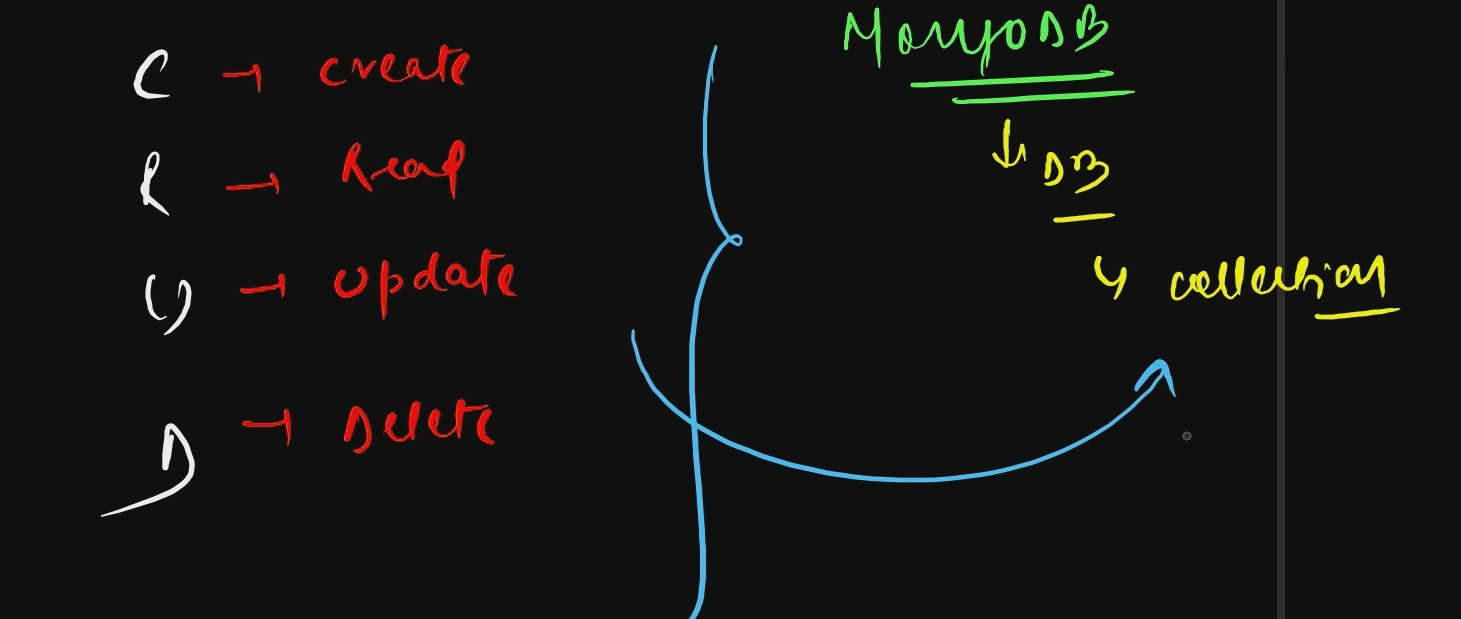 C → create
R → Read
U → update
D → Delete
MongoDB
↓ DB
↳ collection